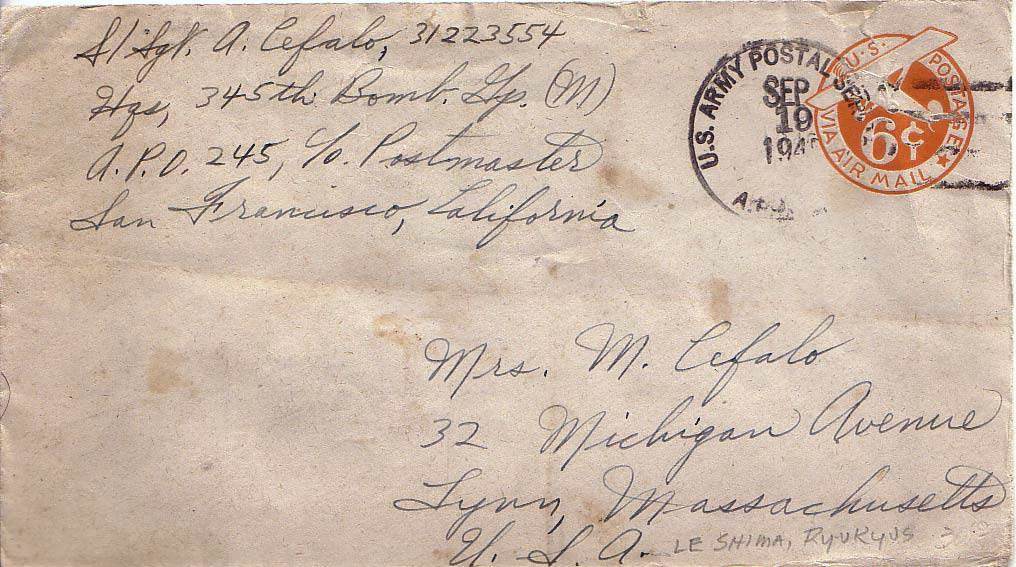 S/Sgt. A. Cefalo, 31223554
Hqs, 345th Bomb. Gp. (M)
A.P.O. 245, c/o Postmaster
San Francisco, California
U.S. ARMY POSTAL SERV
SEP
19
A.P.O.
U.S. POSTAGE
6¢
VIA AIR MAIL
Mrs. M. Cefalo
32 Michigan Avenue
Lynn, Massachusetts
U. S. A.
LE SHIMA, RYUKYUS 3